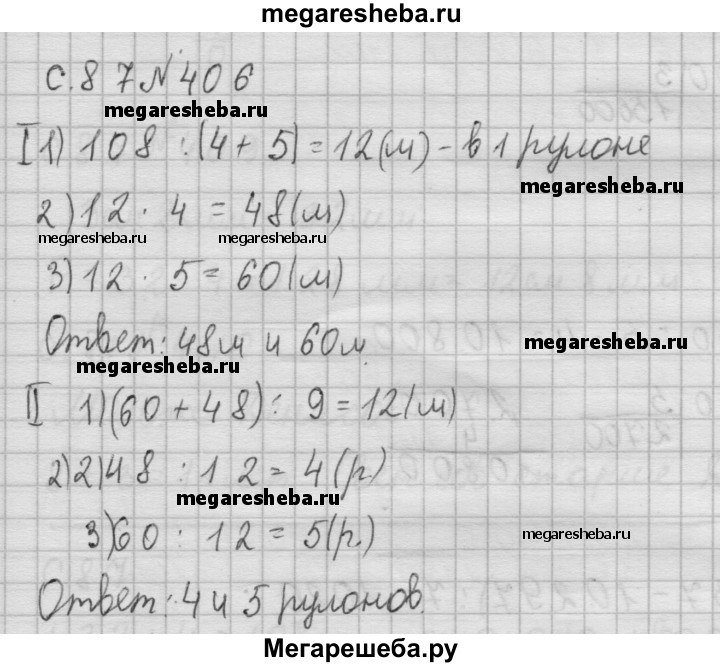 megaresheba.ru
с.87 N 406
megaresheba.ru
I 1) 108 : (4 + 5) = 12 (м) - в 1 рулоне
megaresheba.ru
2) 12 · 4 = 48 (м)
megaresheba.ru megaresheba.ru
3) 12 · 5 = 60 (м)
Ответ: 48 м и 60 м.
megaresheba.ru megaresheba.ru
II 1) (60 + 48) : 9 = 12 (м)
2) 2) 48 : 12 = 4 (р.)
megaresheba.ru
3) 60 : 12 = 5 (р.)
megaresheba.ru
Ответ: 4 и 5 рулонов.
Мегарешеба.ру